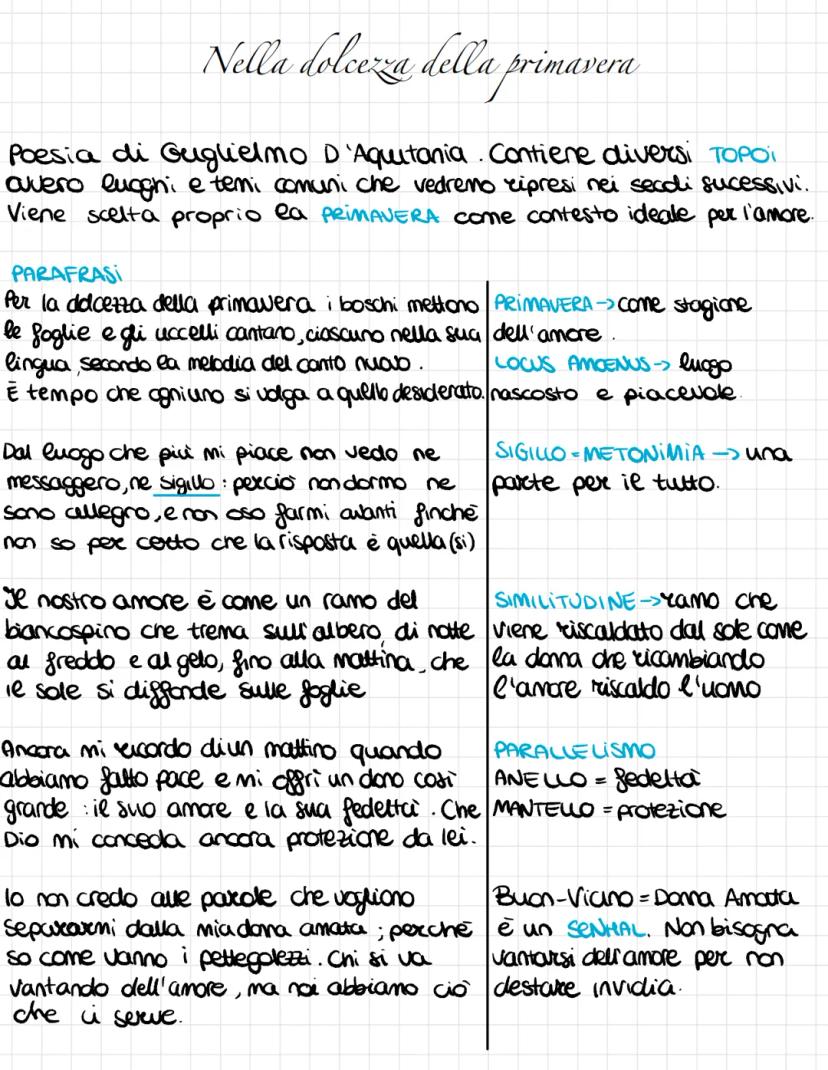 Nella dolcezza della primavera
Poesia di Guglielmo D'Aquitania. Contiene diversi TOPOI
ovvero luoghi e temi comuni che vedremo ripresi nei secoli sucessivi.
Viene scelta proprio la PRIMAVERA come contesto ideale per l'amore.
PARAFRASI
Per la dolcezza della primavera i boschi mettono
le foglie e gli uccelli cantano, ciascuno nella sua
lingua, secondo la melodia del canto nuovo.
È tempo che ogniuno si volga a quello desiderato.
PRIMAVERA -> come stagione
dell'amore.
LOCUS AMOENUS -> luogo
nascosto e piacevole
Dal luogo che più mi piace non vedo ne
messaggero, ne sigillo: perciò non dormo ne
sono allegro, e non oso farmi avanti finché
non so per certo che la risposta è quella (si)
SIGILLO = METONIMIA -> una
parte per il tutto.
Il nostro amore è come un ramo del
biancospino che trema sull'albero, di notte
al freddo e al gelo, fino alla mattina, che
il sole si diffonde sulle foglie
SIMILITUDINE -> ramo che
viene riscaldato dal sole come
la donna che ricambiando
l'amore riscalda l'uomo
Ancora mi ricordo di un mattino quando
abbiamo fatto pace e mi offrì un dono così
grande: il suo amore e la sua fedeltà. Che
Dio mi conceda ancora protezione da lei.
PARALLELISMO
ANELLO = fedeltà
MANTELLO = protezione
Io non credo alle parole che vogliono
separarmi dalla mia dona amata; perché
so come vanno i pettegolezzi. Chi si va
vantando dell'amore, ma noi abbiamo ciò
che ci serve.
Buon-Vicino = Donna Amata
è un SENHAL. Non bisogna
vantarsi dell'amore per non
destare invidia.